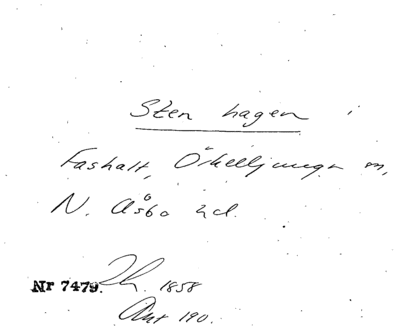 Sten hagen i
Fashalt, Örkelljunga sn,
N. Åsbo hd.
Nr 7479. Lh. 1858
Ant 190.